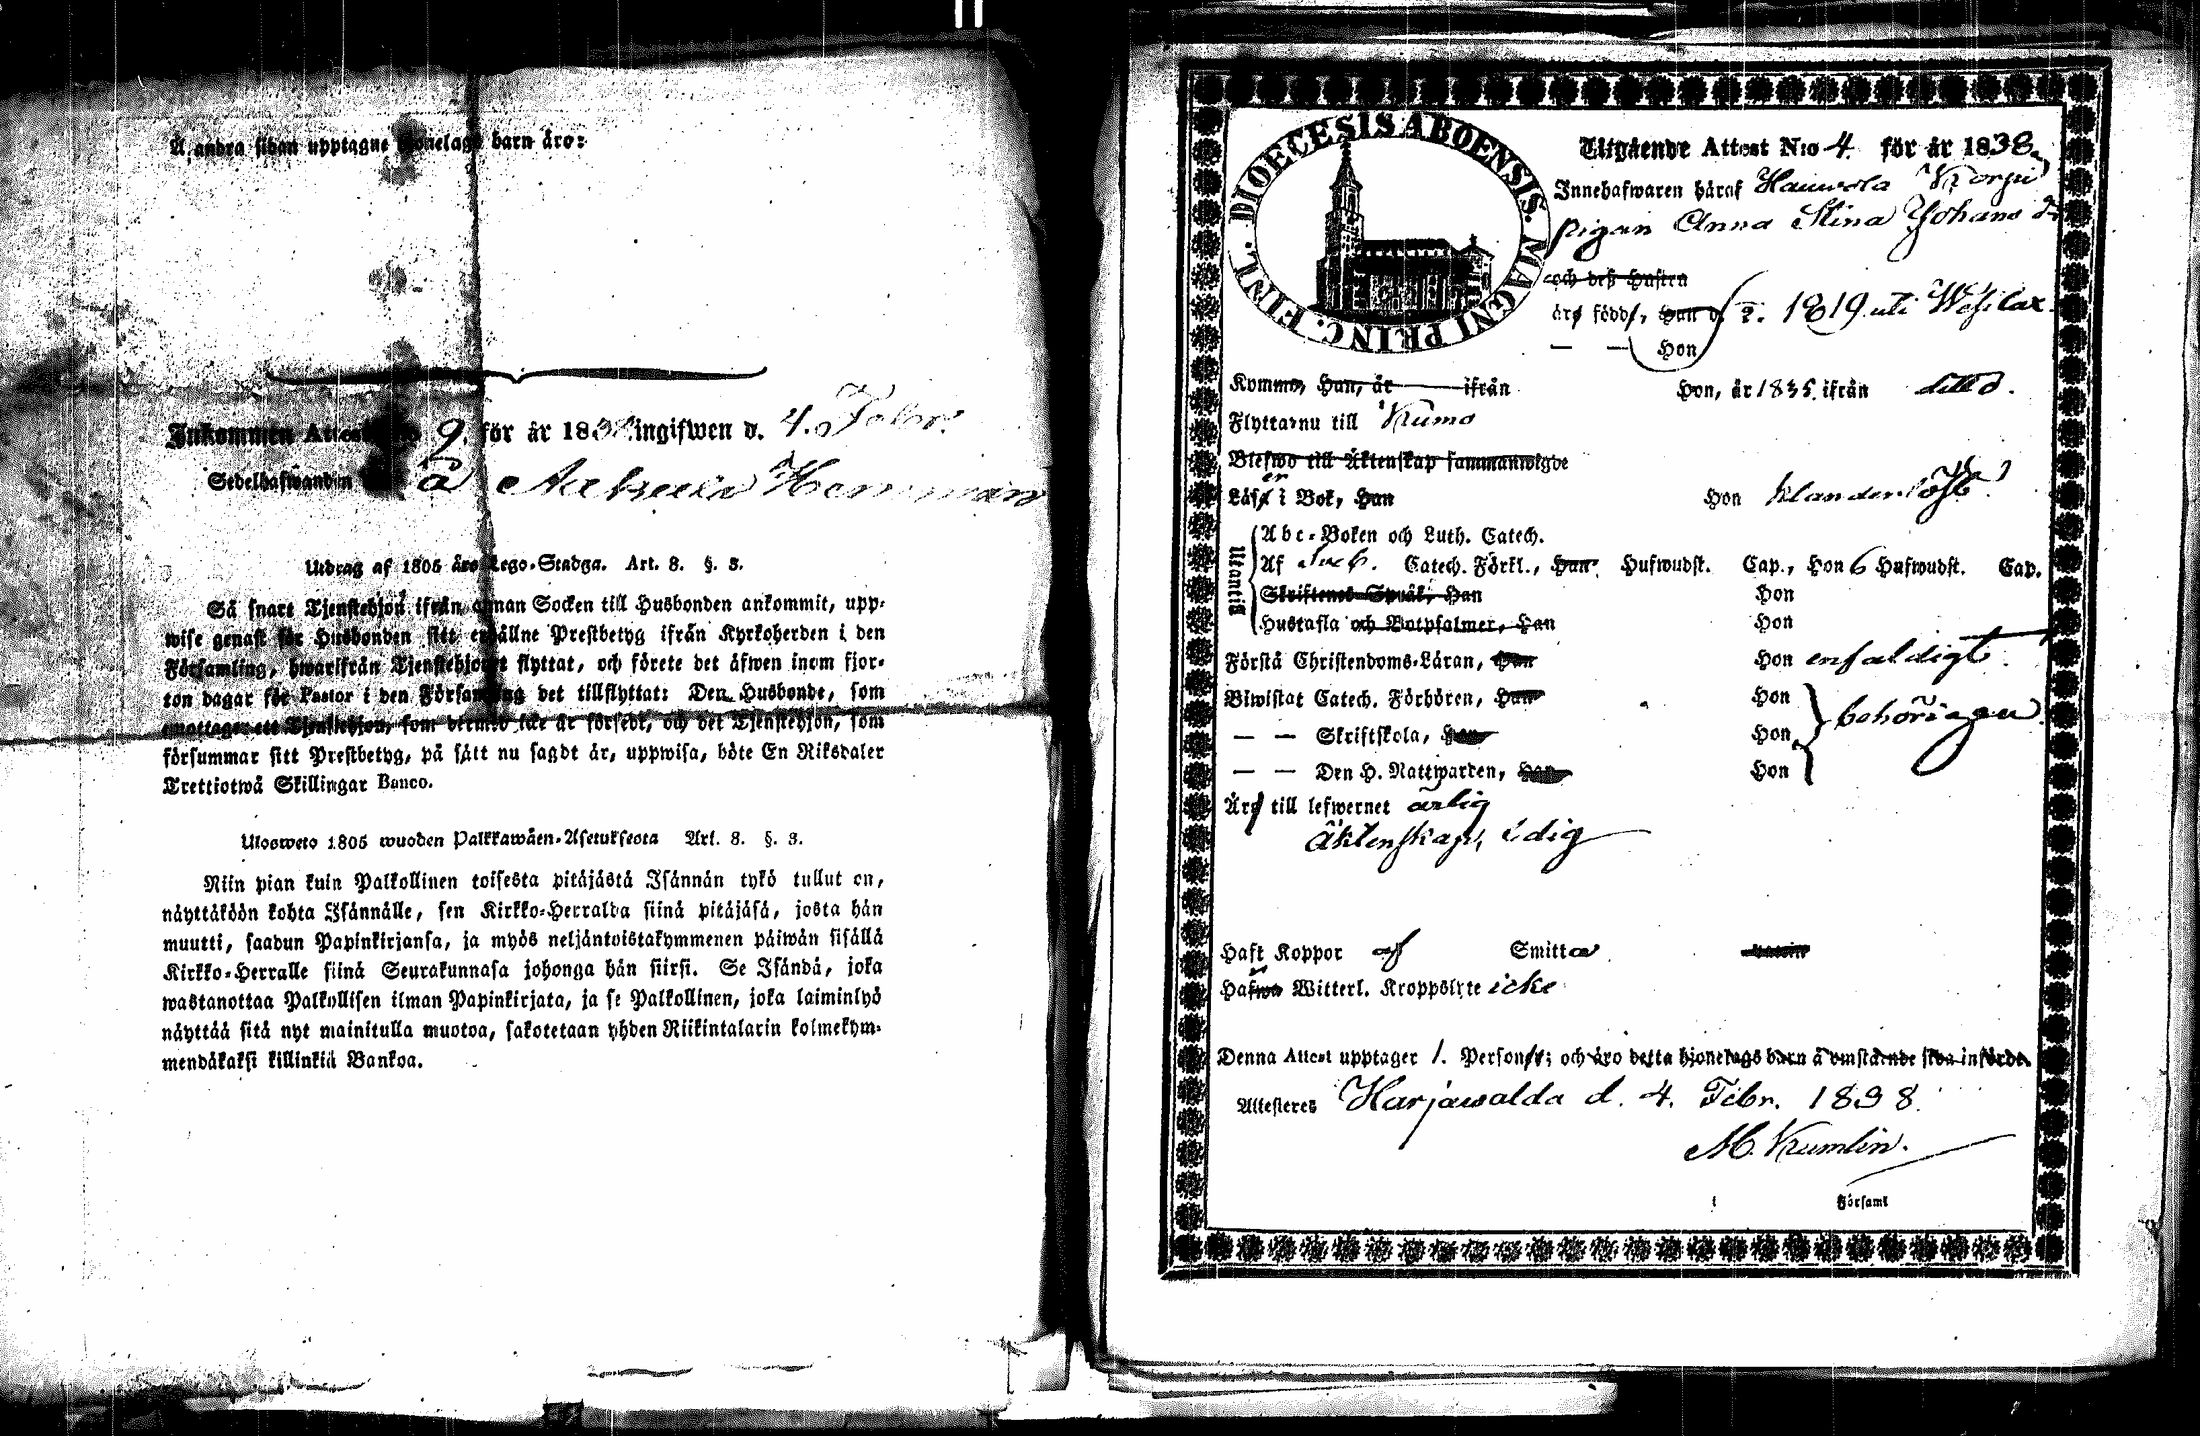 Å andra sidan upptagne hjonelags barn äro:
Inkommen Attest No 9. för år 183 ingifwen d. 4. Febr.
Sedelhafwanden å Hemman
Utdrag af 1805 års Lego-Stadga. Art. 8. §. 3.
Så snart Tjenstehjon ifrån annan Socken till Husbonden ankommit, upp-
wise genast för Husbonden sitt erhållne Prestbetyg ifrån Kyrkoherden i den
Församling, hwarifrån Tjenstehjonet flyttat, och förete det äfwen inom fjor-
ton dagar för Pastor i den Församling det tillflyttat: Den Husbonde, som
emottager ett Tjenstehjon, som dermed icke är försedt, och det Tjenstehjon, som
försummar sitt Prestbetyg, på sätt nu sagdt är, uppwisa, böte En Riksdaler
Trettiotwå Skillingar Banco.
Ulosweto 1805 wuoden Palkkawäen-Asetuksesta Art. 8. §. 3.
Niin pian kuin Palkollinen toisesta pitäjästä Isännän tykö tullut on,
näyttäköön kohta Isännälle, sen Kirkko-Herralda siinä pitäjäsä, josta hän
muutti, saadun Papinkirjansa, ja myös neljäntoistakymmenen päiwän sisällä
Kirkko-Herralle siinä Seurakunnasa johonga hän siirsi. Se Isändä, joka
wastanottaa Palkollisen ilman Papinkirjata, ja se Palkollinen, joka laiminlyö
näyttää sitä nyt mainitulla muotoa, sakotetaan yhden Riikintalarin kolmekym-
mendäkaksi killinkiä Bankoa.
DIOECESIS ABOENSIS. MAGNI PRINC. FINL.
Utgående Attest No 4. för år 1838
Innehafwaren häraf Korpi
pigan Anna Stina Johans dr
och deß Hustru
äro födde, Han d. 1819 uti Wesilax
— — Hon
Kommo, Han, år ifrån Hon, år 1835 ifrån ditto.
Flytta nu till Kumo
Blefwo till Äktenskap sammanwigde
Läser i Bok, Han Hon klanderlöst
Utantill
Abc-Boken och Luth. Catech.
Af Catech. Förkl., Han Hufwudst. Cap., Hon 6 Hufwudst. Cap.
Skriftenes Språk, Han Hon
Hustafla och Botpsalmer, Han Hon
Förstå Christendoms-Läran, Han Hon enfaldigt.
Biwistat Catech. Förhören, Han Hon
— — Skriftskola, Han Hon behörigen
— — Den H. Nattwarden, Han Hon
Äro till lefwernet ärlig
Äktenskap, ledig
Haft Koppor af Smitta
Hafwa Witterl. Kroppslyte icke
Denna Attest upptager 1. Person; och äro detta hjonelags barn å omstående sida införde.
Attesteres Harjawalda d. 4. Febr. 1838.
M. Krumlin.
i Församl